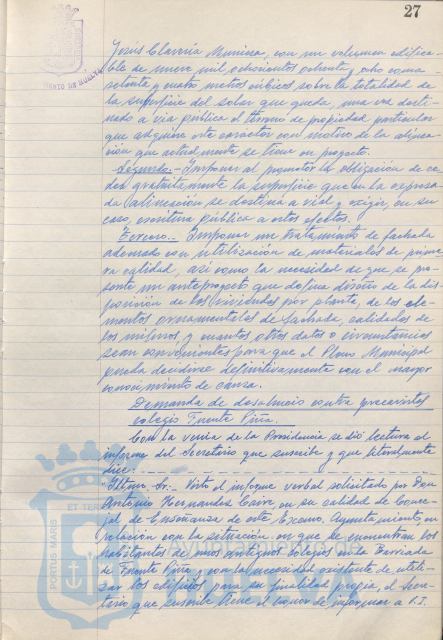 27
AYUNTAMIENTO DE HUELVA
Jesús Clavería Muniesa, con un volumen edifica-
ble de nueve mil ochocientos ochenta, ocho coma
setenta y cuatro metros cúbicos sobre la totalidad de
la superficie del solar que queda, una vez desti-
nado a vía pública el terreno de propiedad particular
que adquiere este carácter con motivo de la alinea-
ción que actualmente se tiene en proyecto.
Segundo.- Imponer al promotor la obligación de ce-
der gratuitamente la superficie que en la expresa-
da alineación se destina a vial y exigir, en su
caso, escritura pública a estos efectos.
Tercero.- Imponer un tratamiento de fachada
adecuado con utilización de materiales de prime-
ra calidad, así como la necesidad de que se pre-
sente un anteproyecto que defina diseño de la dis-
posición de las viviendas por planta, de los ele-
mentos ornamentales de fachada, calidades de
los mismos y cuantos otros datos o circunstancias
sean convenientes para que el Pleno Municipal
pueda decidirse definitivamente con el mayor
conocimiento de causa.
Demanda de desahucio contra precaristas
colegio Fuente Piña.
Con la venia de la Presidencia se dió lectura al
informe del Secretario que suscribe y que literalmente
dice:
"Iltmo. Sr.- Visto el informe verbal solicitado por Don
Antonio Hernández Caire en su calidad de Conce-
jal de Enseñanza de este Excmo. Ayuntamiento, en
relación con la situación en que se encuentran los
habitantes de unos antiguos colegios en la Barriada
de Fuente Piña, con la necesidad existente de utili-
zar los edificios para su finalidad propia, el Secre-
tario que suscribe tiene el honor de informar a V.I.
PORTUS MARIS
ET TER